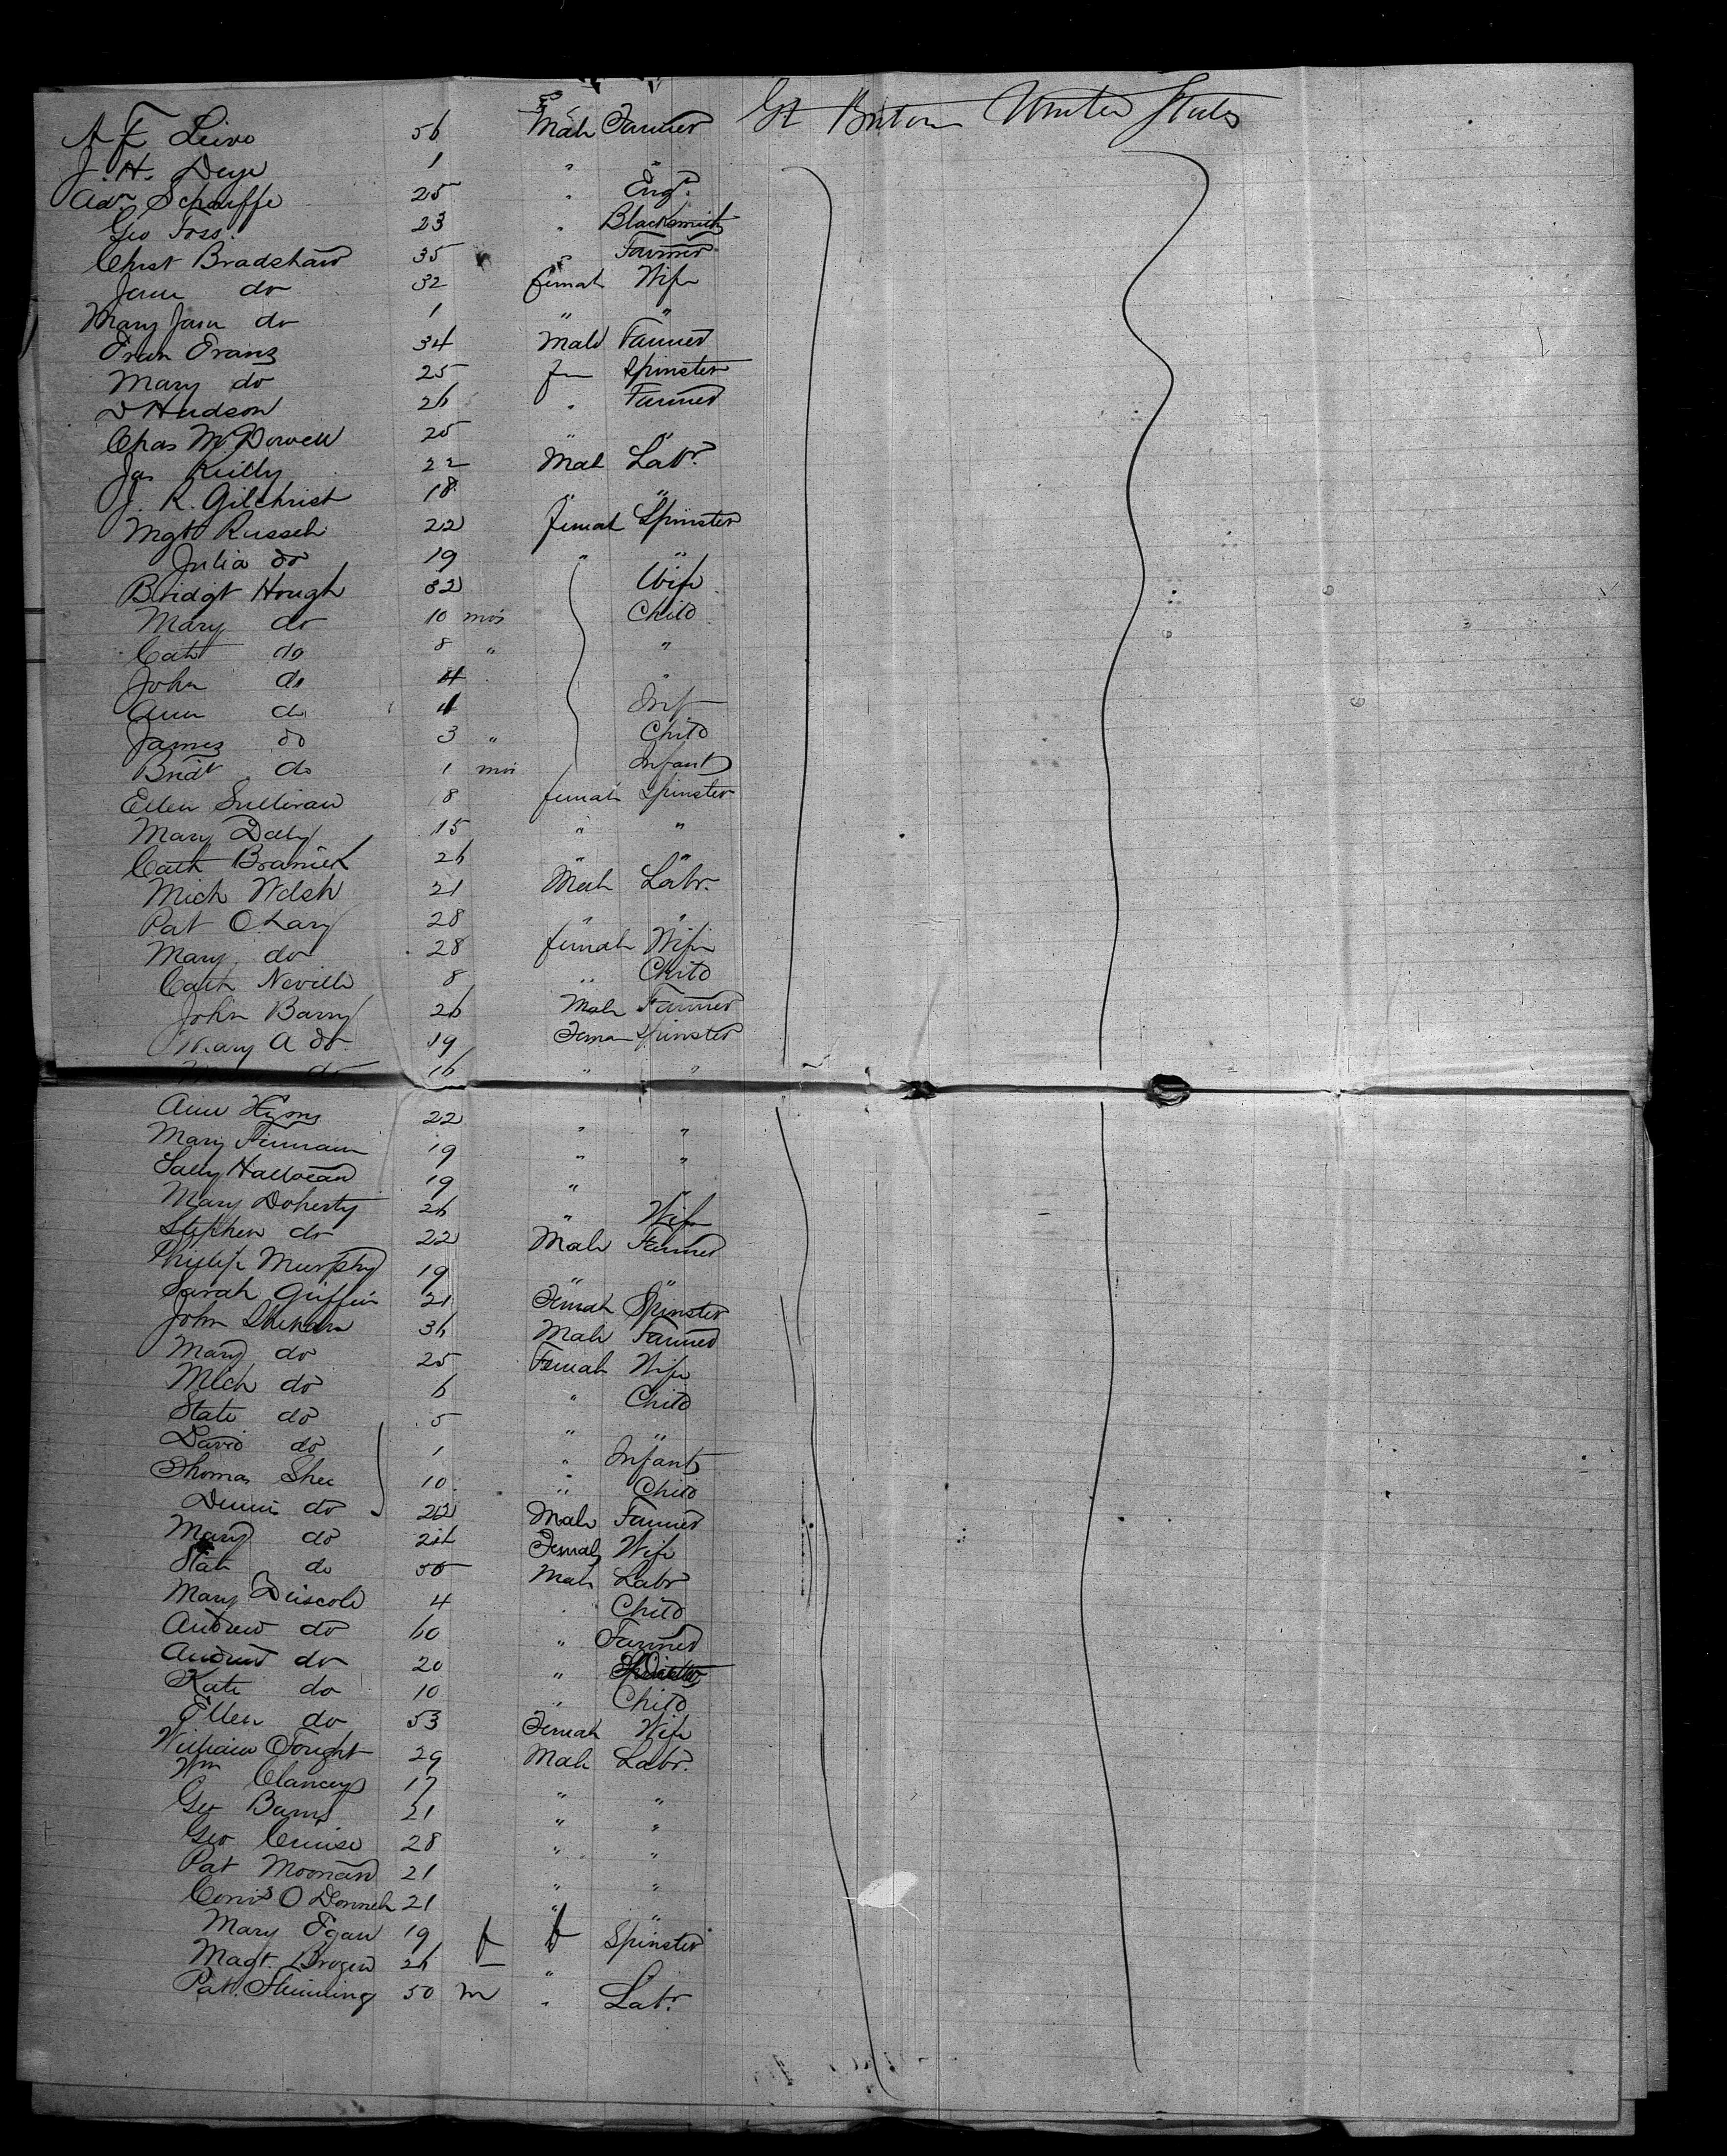 A F Leivo 56 Male Farmer Gt Britain United States
J. H. Deye 1 " "
Adr Scharffe 25 " Engr.
Geo Foss. 23 " Blacksmith
Christ Bradshaw 35 " Farmer
Jane do 32 female Wife
Mary Jane do 1 " "
Evan Evans 34 Male Farmer
Mary do 25 fm Spinster
D Hudson 26 " Farmer
Chas McDowell 25 " "
Jas Reilly 22 Male Labr.
J. R. Gilchrist 18 " "
Mgt Russell 22 female Spinster
Julia do 19 " "
Bridgt Hough 32 Wife
Mary do 10 mos Child
Cath do 8 " "
John do 4 "
Ann do 4 Inf
James do 3 " Child
Bridt do 1 mos Infant
Ellen Sullivan 18 female Spinster
Mary Daly 15 " "
Cath Branick 26 " "
Mich Welsh 21 Male Labr.
Pat OLary 28 " "
Mary do 28 female Wife
Cath Neville 8 " Child
John Barry 26 Male Farmer
Mary A do 19 Fema Spinster
do 16 " "
Ann Hyms 22 " "
Mary Finnan 19 " "
Sally Halloran 19 " "
Mary Doherty 26 " Wife
Stephen do 22 Male Farmer
Philip Murphy 19 " "
Sarah Griffin 21 Female Spinster
John Shehan 36 Male Farmer
Mary do 25 Female Wife
Mich do 6 " Child
State do 5 " "
David do 1 " Infant
Thomas Shee 10 " Child
Dennis do 22 Male Farmer
Mary do 24 Female Wife
Stat do 50 Male Labr
Mary Driscoll 4 " Child
Andrew do 60 " Farmer
Andrew do 20 "
Kate do 10 " Child
Ellen do 53 Female Wife
William Fought 29 Male Labr.
Wm Clancey 17 " "
Geo Barns 21 " "
Geo Cruise 28 " "
Pat Moonan 21 " "
Corns O Donnell 21 " "
Mary Egan 19 f f Spinster
Magt. Brogen 26 "
Pat. Flemming 50 m " Labr.